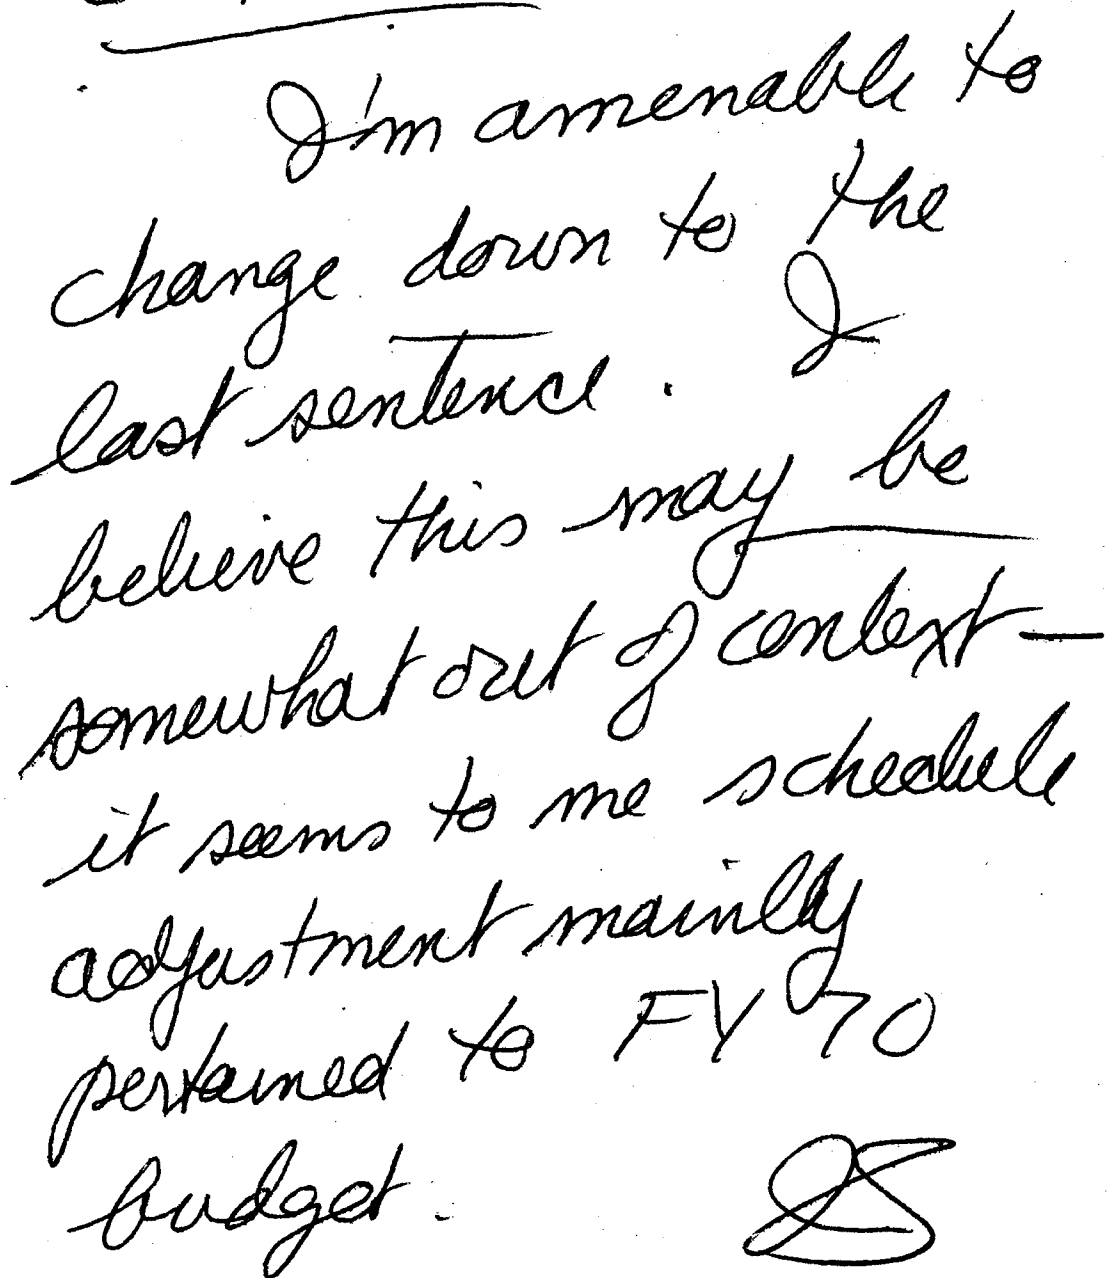 I'm amenable to
change down to the
last sentence. I
believe this may be
somewhat out of context —
it seems to me schedule
adjustment mainly
pertained to FY 70
budget.